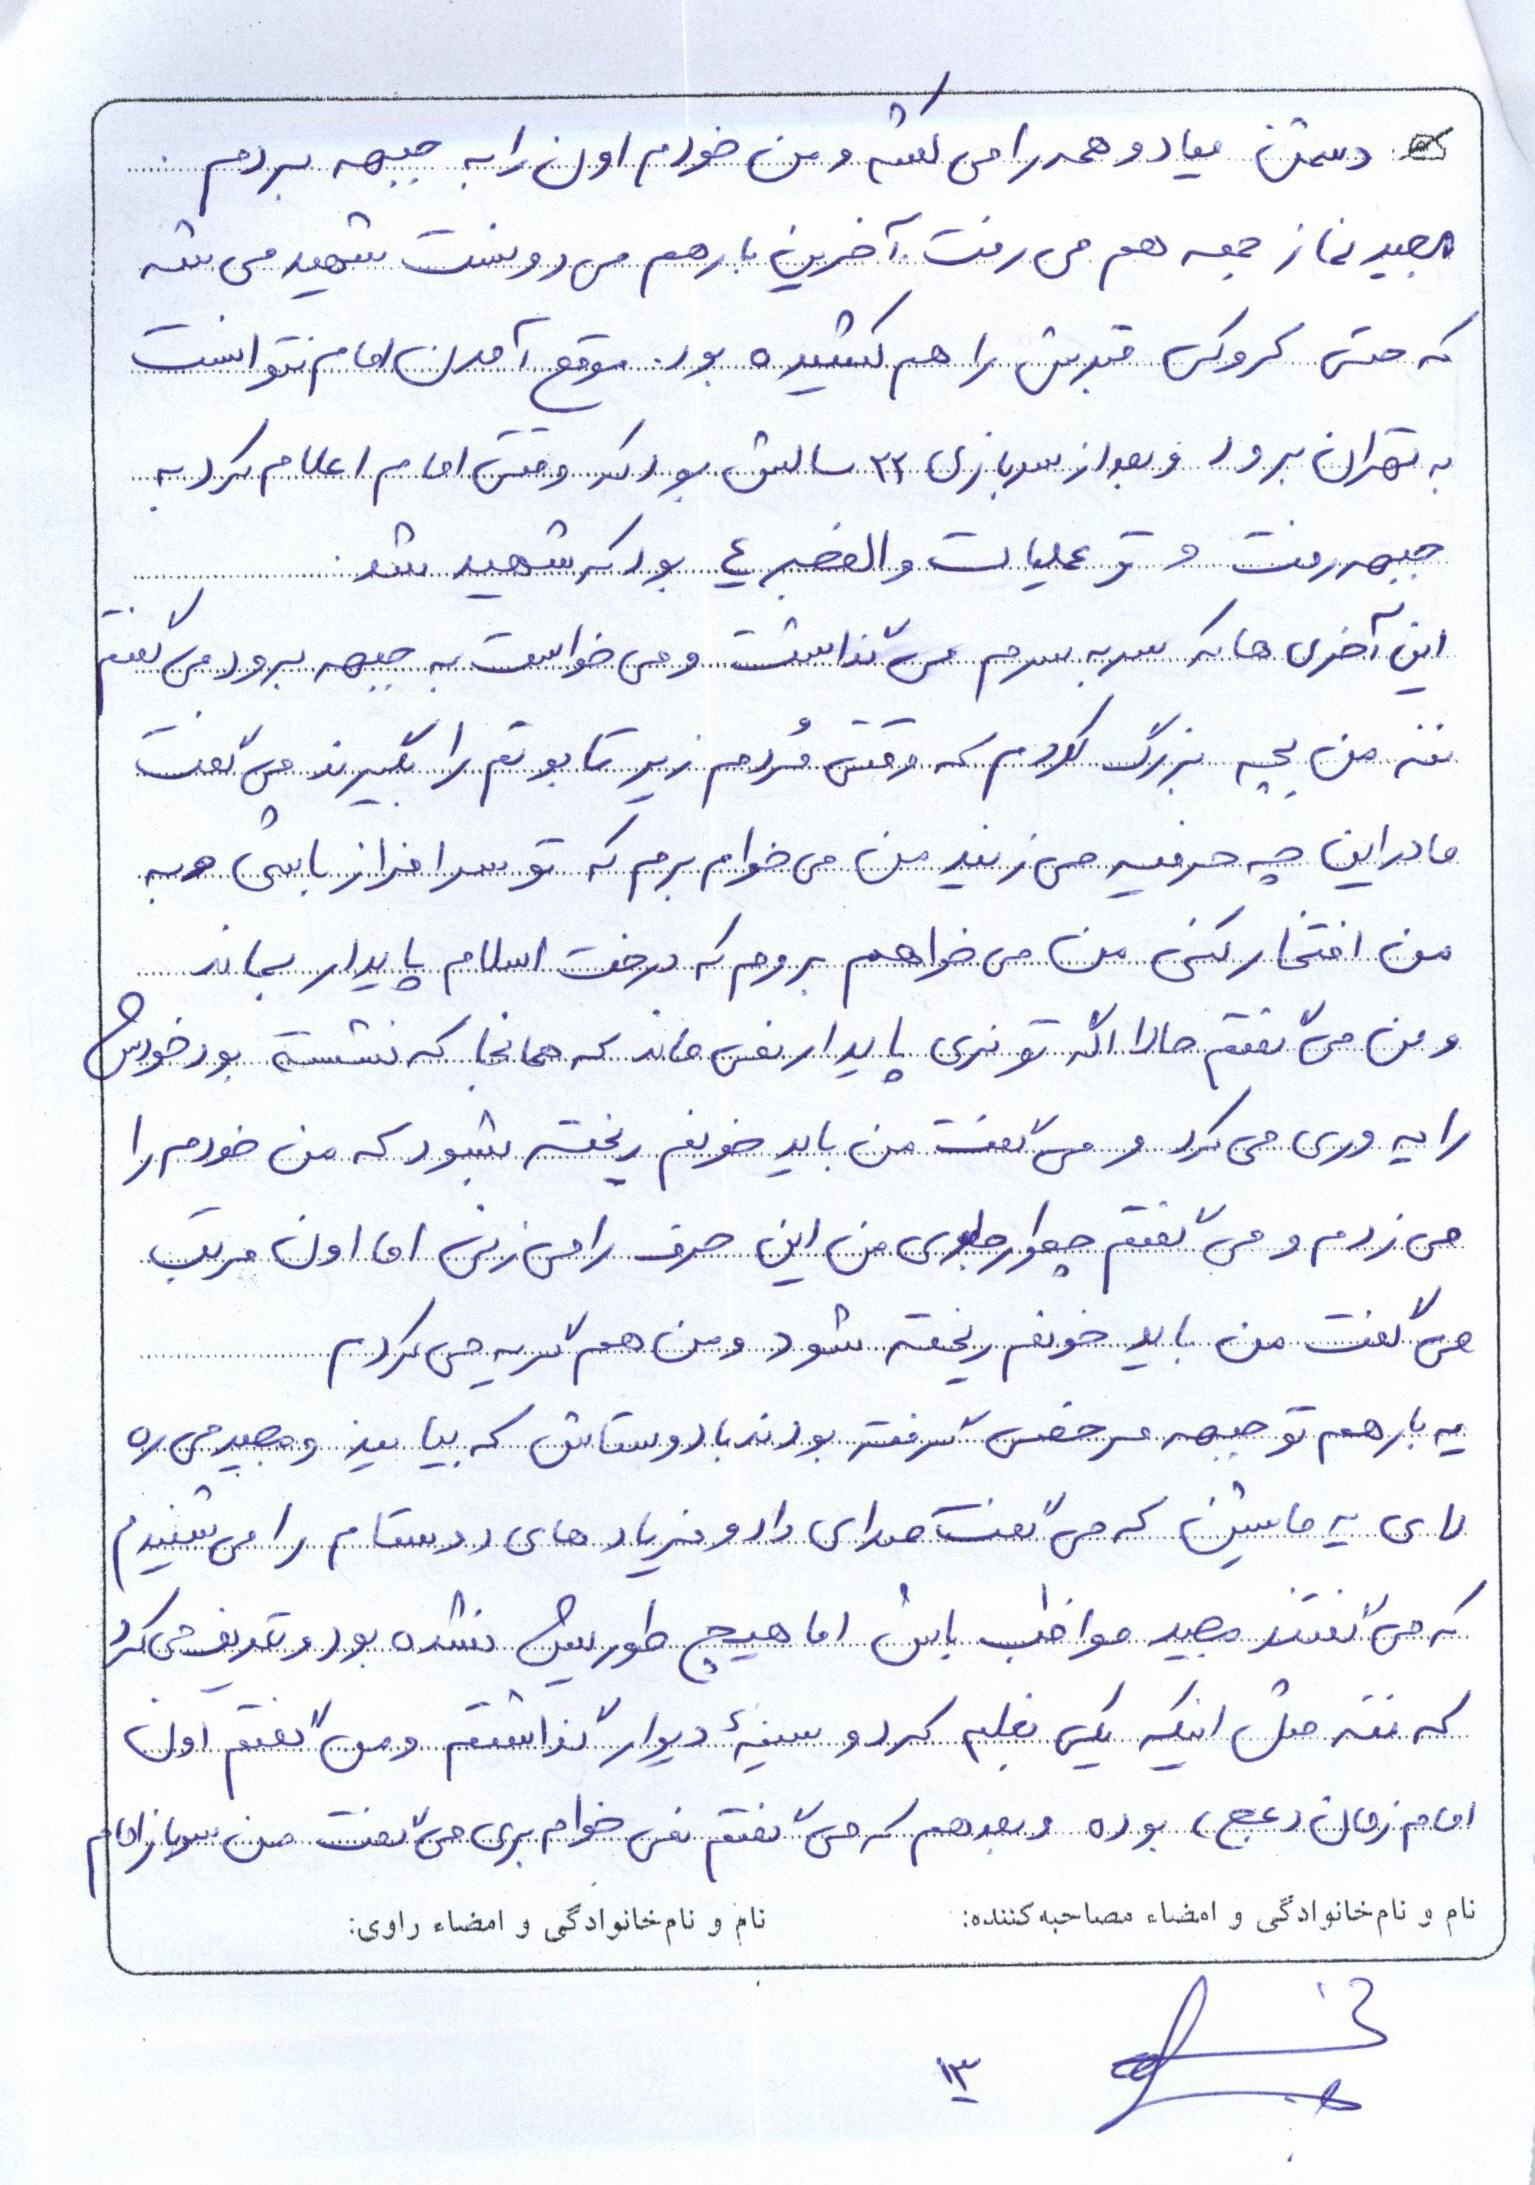 دشمن میاد و همه را می کشه و من خودم اون را به جبهه بردم .
مجید نماز جمعه هم می رفت. آخرین بار هم می دونست شهید می شه
که حتی کروکی قبرش را هم کشیده بود. موقع آمدن امام نتوانست
به تهران برود و بعد از سربازی ۲۲ سالش بود که وقتی امام اعلام کرد به
جبهه رفت و تو عملیات والفجر ٤ بود که شهید شد.
این آخری ها که سر به سرم می گذاشت و می خواست به جبهه برود می گفتم
ننه من بچه بزرگ کردم که وقتی مُردم زیر تابوتم را بگیرند می گفت
مادر این چه حرفیه می زنید من می خوام برم که تو سرافراز باشی و به
من افتخار کنی من می خواهم بروم که درخت اسلام پایدار بماند
و من می گفتم حالا اگه تو نری پایدار نمی ماند که همانجا که نشسته بود خودش
را یه وری می کرد و می گفت من باید خونم ریخته بشود که من خودم را
می زدم و می گفتم چطور جلوی من این حرف را می زنی اما اون مرتب
می گفت من باید خونم ریخته شود و من هم گریه می کردم
یه بار هم تو جبهه مرخصی گرفته بودند با دوستاش که بیایند و مجید می ره
لای یه ماشین که می گفت صدای داد و فریادهای دوستام را می شنیدم
که می گفتند مجید مواظب باش اما هیچ طوریش نشده بود و تعریف می کرد
که ننه مثل اینکه یکی بغلم کرد و سینهٔ دیوار گذاشتم و من گفتم اون
امام زمان (عج) بوده و بعد هم که می گفتم نمی خوام بری می گفت من سرباز امام
نام و نام‌خانوادگی و امضاء مصاحبه‌کننده: نام و نام‌خانوادگی و امضاء راوی:
۱۳